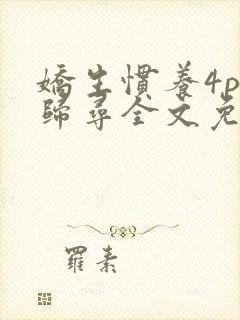 嬌生慣養4p
歸尋全文免
羅素